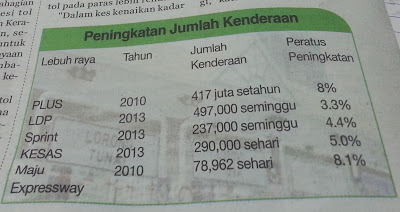 ahagian
esi tol
n Kera-
n, se-
untuk
eyaan
mba-
ke-
tol
tol pada paras lebih
"Dalam kes kenaikan kadar
gi,
Peningkatan Jumlah Kenderaan
Lebuh raya Tahun Jumlah Kenderaan Peratus Peningkatan
PLUS 2010 417 juta setahun 8%
LDP 2013 497,000 seminggu 3.3%
Sprint 2013 237,000 seminggu 4.4%
KESAS 2013 290,000 sehari 5.0%
Maju Expressway 2010 78,962 sehari 8.1%